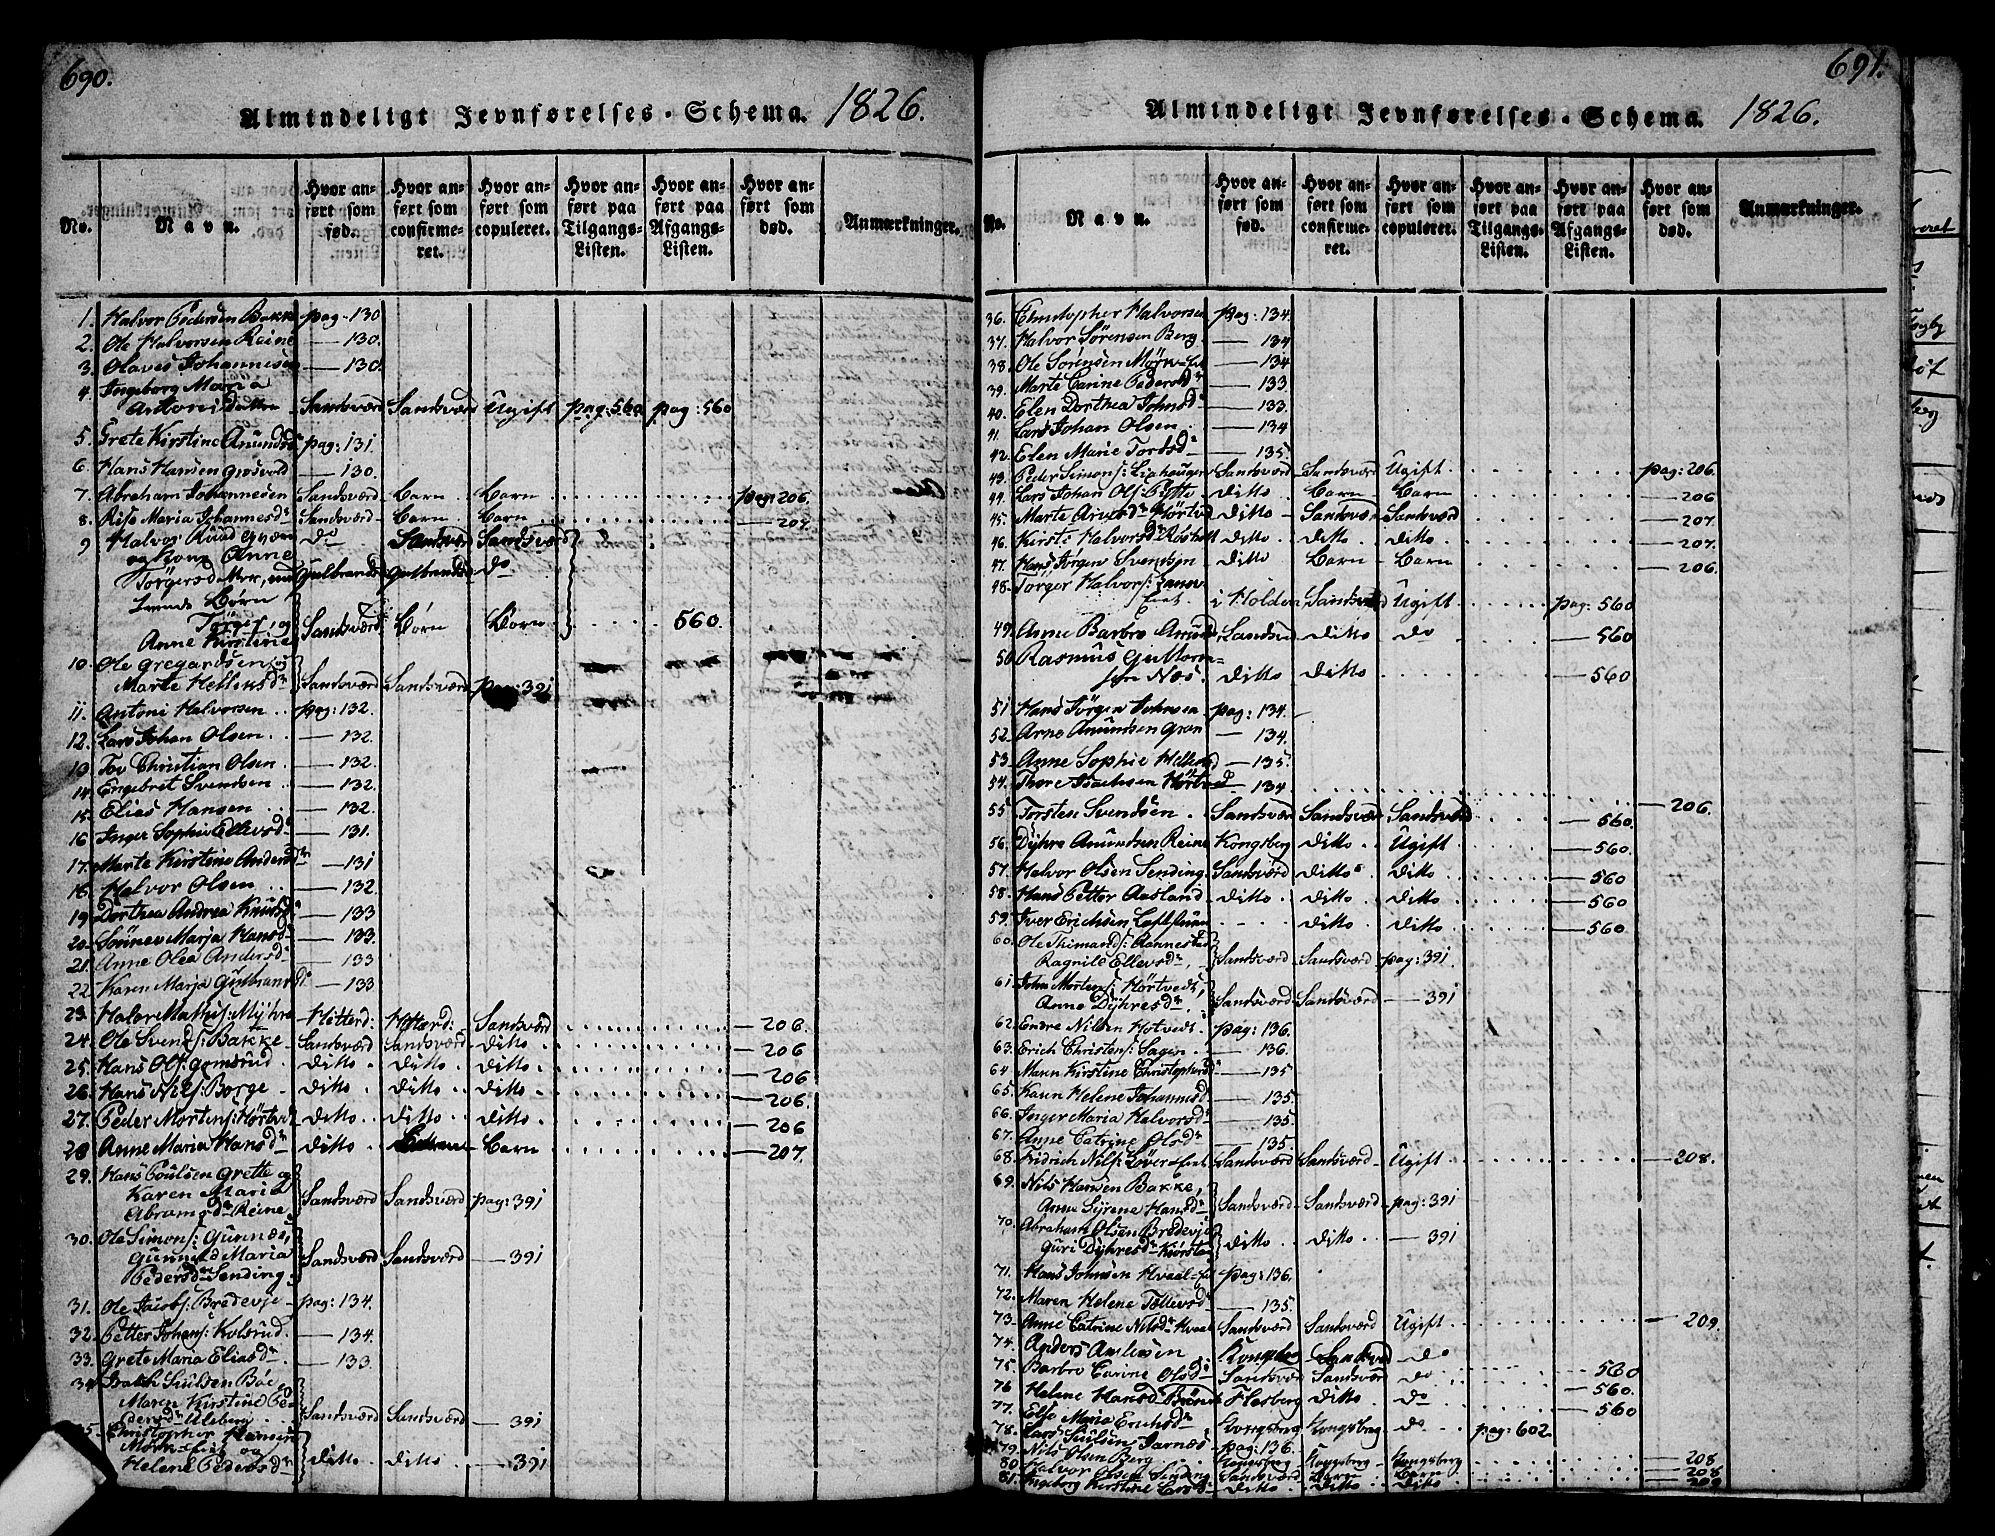 690.
Almindeligt Jevnførelses-Schema. 1826.
No. Navn. Hvor anført som fød. Hvor anført som confirmeret. Hvor anført som copuleret. Hvor anført paa Tilgangs-Listen. Hvor anført paa Afgangs-Listen. Hvor anført som død. Anmærkninger.
1. Halvor Pedersen Bakke pag-130
2. Ole Halvorsen Reine — 130.
3. Olaves Johannesen — 130.
4. Ingeborg Maria
Sandsværd Sandsværd Ugift pag: 560 pag: 560
5. Grete Kirstine Anundsd pag: 131.
6. Hans Hansen Grosvold — 130.
7. Abraham Johannesen Sandsværd - Barn - Barn pag: 206.
8. Maria Johannesdn Sandsværd - Barn Barn — 207.
9 Halvor do Sandsværd Sandsværd
og Kone Anne
Torgersd Gulbrandsd Gulbrandsd do
Børn
Torger, og Sandsværd Børn Børn 560.
Anne Kirstine
10. Ole Gregardsen og
Marte Hellesdn Sandsværd Sandsværd pag: 391
11. Antoni Halvorsen pag: 132.
12. Lars Johan Olsen — 132.
13. Tov Christian Olsen — 132.
14. Engebret Svendsen — 132.
15. Elias Hansen — 132.
16 Inger Sophie Ellevsdn — 131.
17. Marte Kirstine Andersdn — 131
18. Halvor Olsen — 132.
19. Dorthea Andrea Knudsdn — 133
20. Sønnev Marja Hansdn — 133.
21. Anne Olea Andersdn — 133
22. Karen Marja Gulbransdn. — 133
23. Halvor Mathis: Myhre Hitterd: Hitterd: Sandsværd — 206.
24. Ole Svends: Bakke Sandsværd Sandsværd ditto — 206
25. Hans Ols: Gomsrud ditto ditto ditto — 206
26. Hans Nils: Borge ditto ditto ditto — 206.
27. Peder Mortens: Hørtved ditto ditto ditto — 206
28 Anne Maria Hansdn ditto Barn — 207.
29. Hans Poulsen Grette og
Karen Maria Sandsværd Sandsværd pag: 391
Abramsdn Reine
30. Ole Simons: Gunnes,
Gunnild Maria Sandsværd Sandsværd — 391
Pedersdn Sending
31. Ole Jacobs: Bredevje pag: 134.
32. Petter Johans: Kolsrud. — 134.
33. Grete Maria Eliasdn — 133.
34 Siulsen Bøe
Maren Kirstine Pe
dersdn Ulsberg Sandsværd Sandsværd — 391
35 Christopher Hansen
og
Helene Pedersdn ditto ditto — 391
691.
Almindeligt Jevnførelses-Schema. 1826.
No. Navn. Hvor anført som fød. Hvor anført som confirmeret. Hvor anført som copuleret. Hvor anført paa Tilgangs-Listen. Hvor anført paa Afgangs-Listen. Hvor anført som død. Anmærkninger.
36. Christopher Halvorsen pag: 134.
37. Halvor Sørensen Berg — 134
38. Ole Sørensen Mørk-eie — 134
39. Marte Carine Pedersdn — 133.
40. Elen Dorthea Johnsdn — 133.
41. Lars Johan Olsen — 134
42. Elen Marie Tordsdn — 135.
43. Peder Simons: Liahaugen Sandsværd Sandsværd Ugift pag: 206.
44. Lars Johan Ols: Pytte ditto Barn Barn — 206
45. Marte Hørtved ditto Sandsværd Sandsværd — 207.
46. Kirsti Halvorsdn Røsholt ditto ditto ditto — 207.
47. Hans Jørgen Svendsen ditto Barn Barn — 206.
48. Torger Halvors:
i Holden Sandsværd Ugift pag: 560
49. Anne Barbro Sandsværd ditto do — 560
50 Rasmus Guttorm-
sen Næs. ditto ditto — 560
51 Hans Jørgen Johnsen pag: 134.
52. Arne Anundsen Gran — 134.
53. Anne Sophie Hellesd — 135.
54. Thore Isachsen Hørtved — 134 — 206.
55 Torsten Svendsen Sandsværd Sandsværd Sandsværd — 560.
56. Dyhre Amundsen Reine Kongsberg ditto Ugift — 560.
57. Halvor Olsen Sending Sandsværd ditto ditto — 560
58. Hans Petter Aasland ditto ditto ditto — 560
59. Iver Erichsen ditto ditto — 560
60. Ole Thimands: Rannestad
Ragnild Ellevsdn Sandsværd Sandsværd pag: 391
61. John Mortens: Hørtvedt,
Anne Dyhresdn Sandsværd Sandsværd — 391
62. Endre Nilsen Hotvedt pag: 136.
63. Erich Christens: Sagen — 136.
64 Maren Kirstine Christophersdn — 135
65. Karen Helene Johannesd — 135.
66. Inger Maria Halvorsdn — 135.
67. Anne Catrine Olsdn — 135.
68. Fridrich Nils: Løver-eie Sandsværd Sandsværd Ugift — 208.
69. Nils Hansen Bakke,
Anne Syrene Hansdn Sandsværd Sandsværd pag: 391
70. Abraham Olsen Bredevje
Guri Dyhresdn ditto ditto — 391
71. Hans Johnsen Hvaal-eie pag: 136.
72. Maren Helene Tollevsdn — 135.
73. Anne Catrine Nilsdn Hvaal Sandsværd Sandsværd Ugift — 209.
74. Anders Kongsberg Sandsværd do
75. Barbro Carine Olsdn Sandsværd Sandsværd do — 560
76 Helene Hansdn Flesberg ditto do — 560.
77. Else Maria Erichsdn Kongsberg Kongsberg do — 560 pag: 602.
78. Lars Siulsen Jarnæs pag: 136.
79. Nils Olsen Berg Kongsberg Kongsberg Kongsberg — 208
80 Halvor Olsen Sending Sandsværd Barn Barn — 208
81. Ingeborg Kirstine Larsd ditto ditto ditto — 209